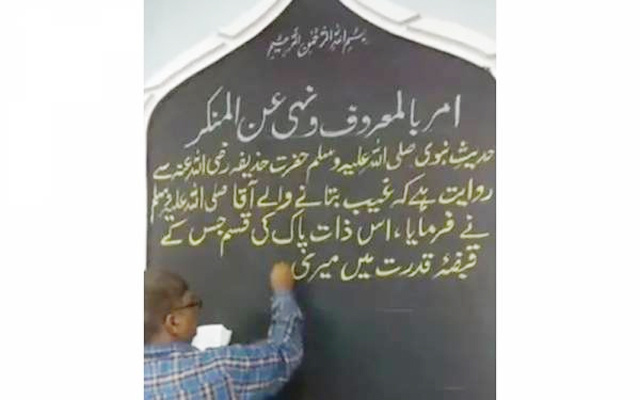 بسم اللہ الرحمٰن الرحیم
امر بالمعروف و نہی عن المنکر
حدیثِ نبوی صلی اللہ علیہ وسلم حضرت حذیفہ رضی اللہ عنہ سے
روایت ہے کہ غیب بتانے والے آقا صلی اللہ علیہ وسلم
نے فرمایا، اس ذات پاک کی قسم جس کے
قبضۂ قدرت میں میری